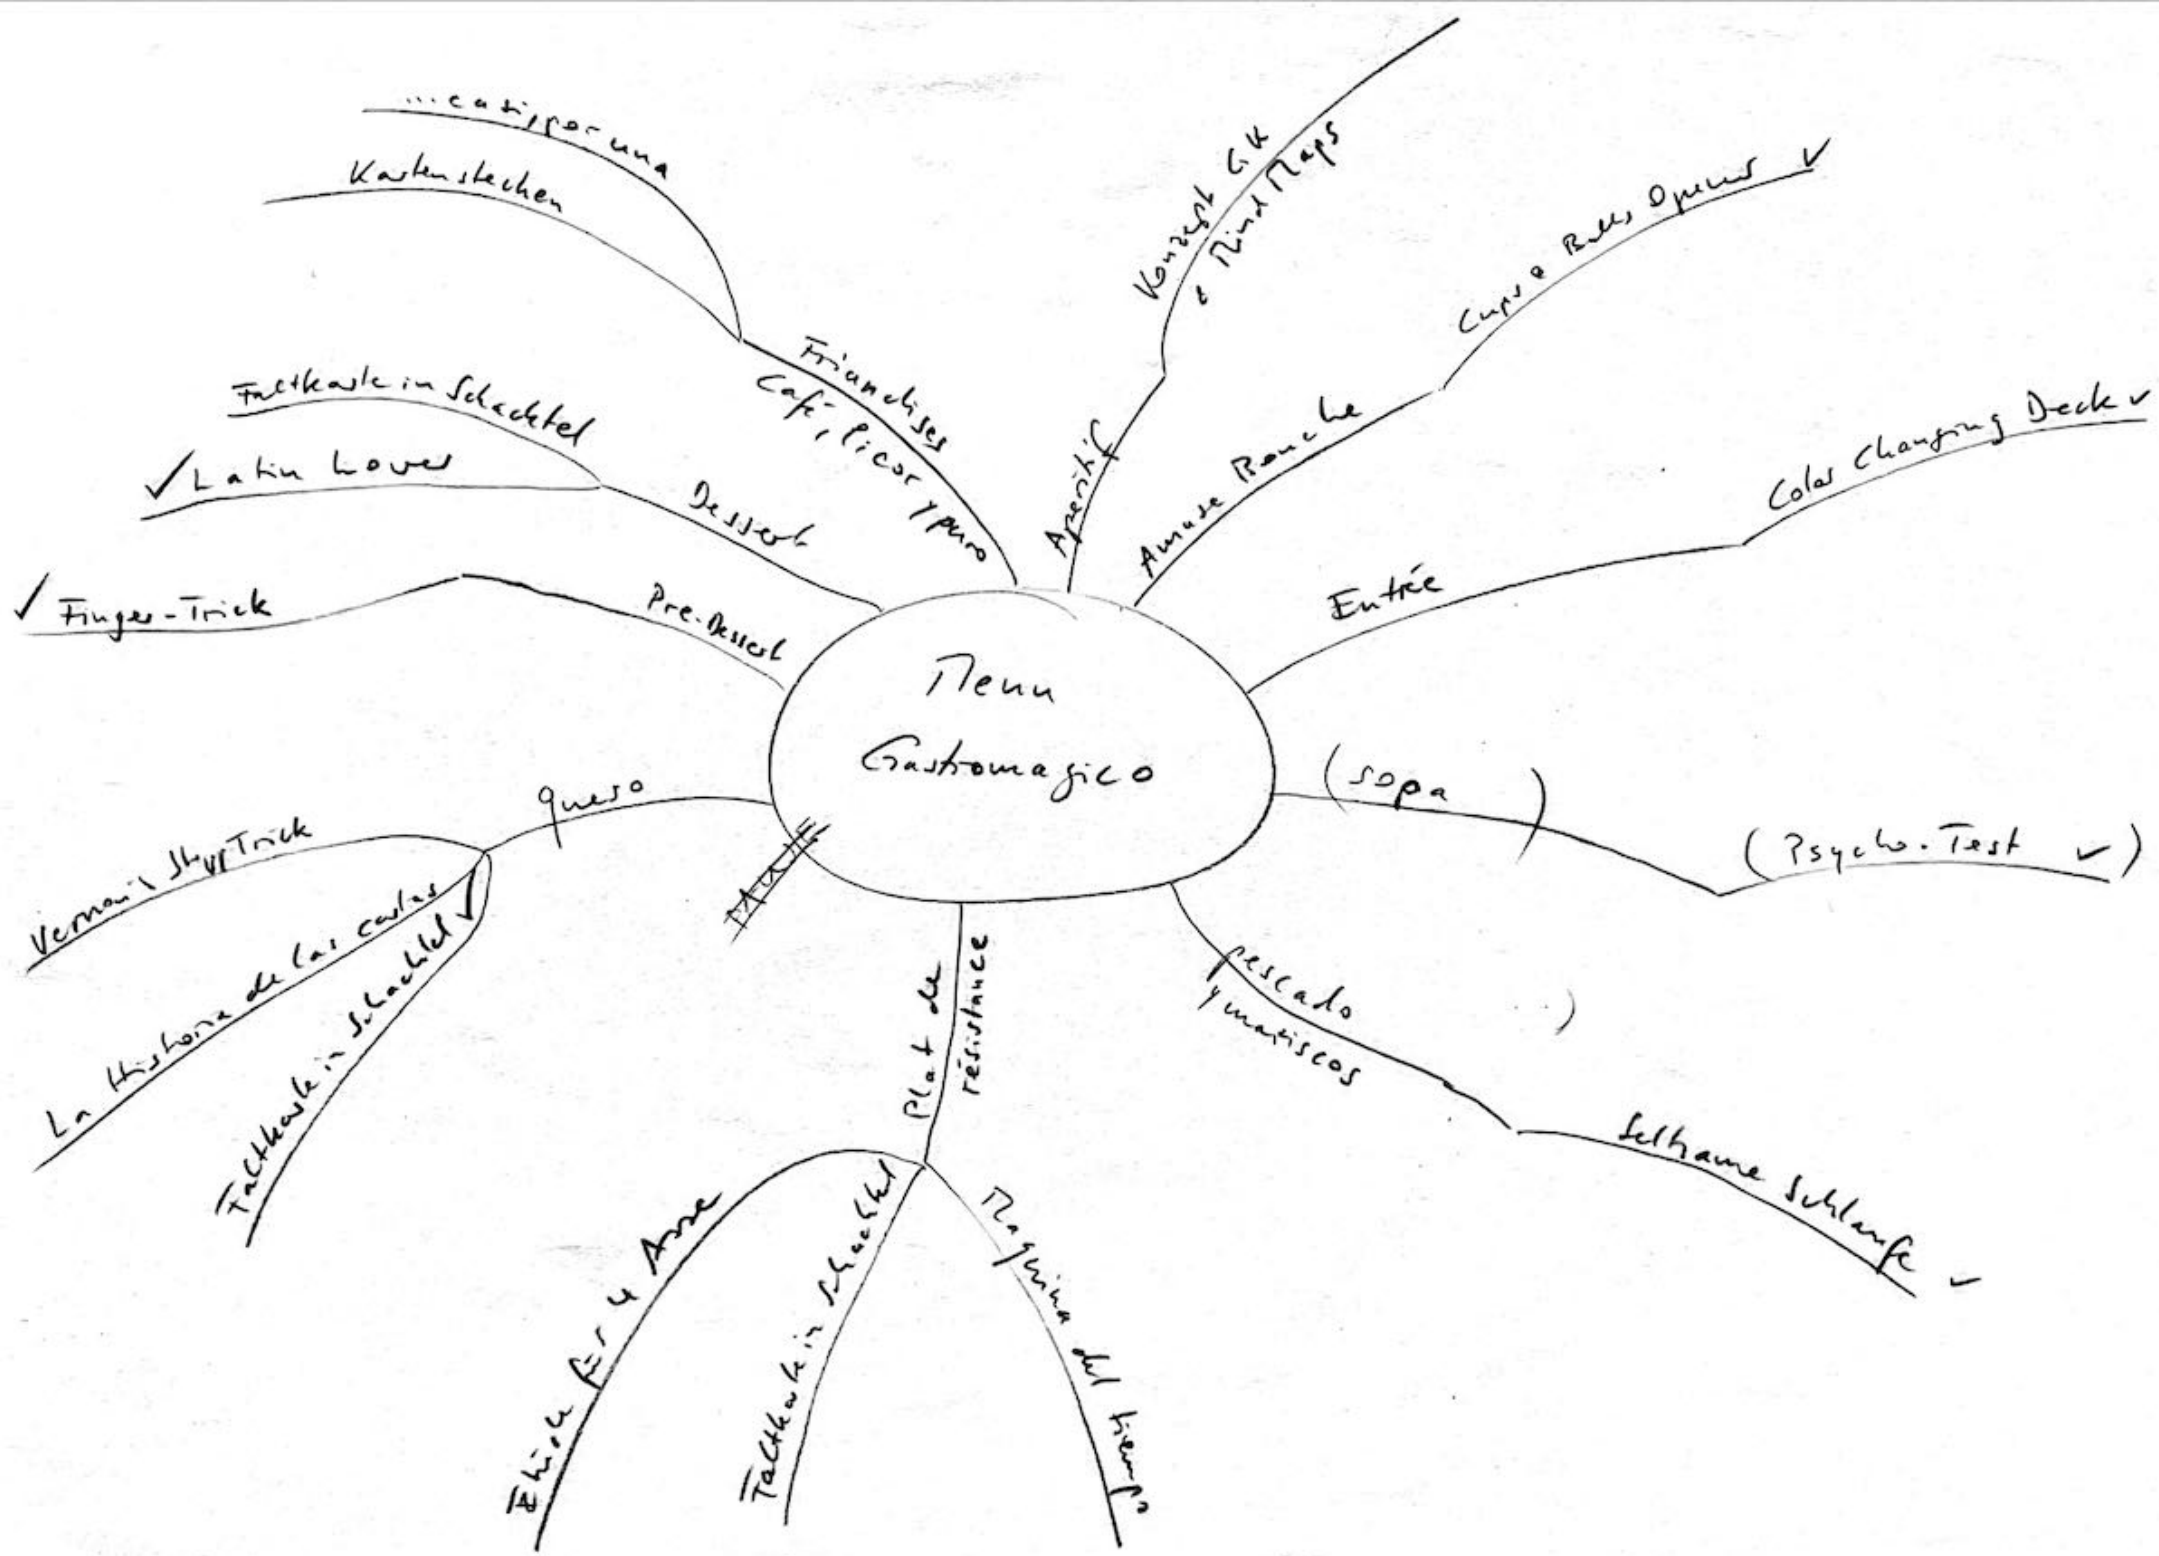 Menu
Gastromagico
Aperitif
Konzept GK
& Mind Maps
Amuse Bouche
Cups & Balls Opener ✓
Entrée
Color Changing Deck ✓
(sopa)
(Psycho-Test ✓)
pescado
y mariscos
Seltsame Schlaufe ✓
Plat de
résistance
Maquina del tiempo
Faltkarte in Schachtel
für 4 Asse
queso
Vernon's Trick
La Historia de las cartas
Faltkarte in Schachtel ✓
Pre-Dessert
✓ Finger-Trick
Dessert
Faltkarte in Schachtel
✓ Latin Lover
Friandises
Café, licor y puro
...casi, por una
Kartenstechen